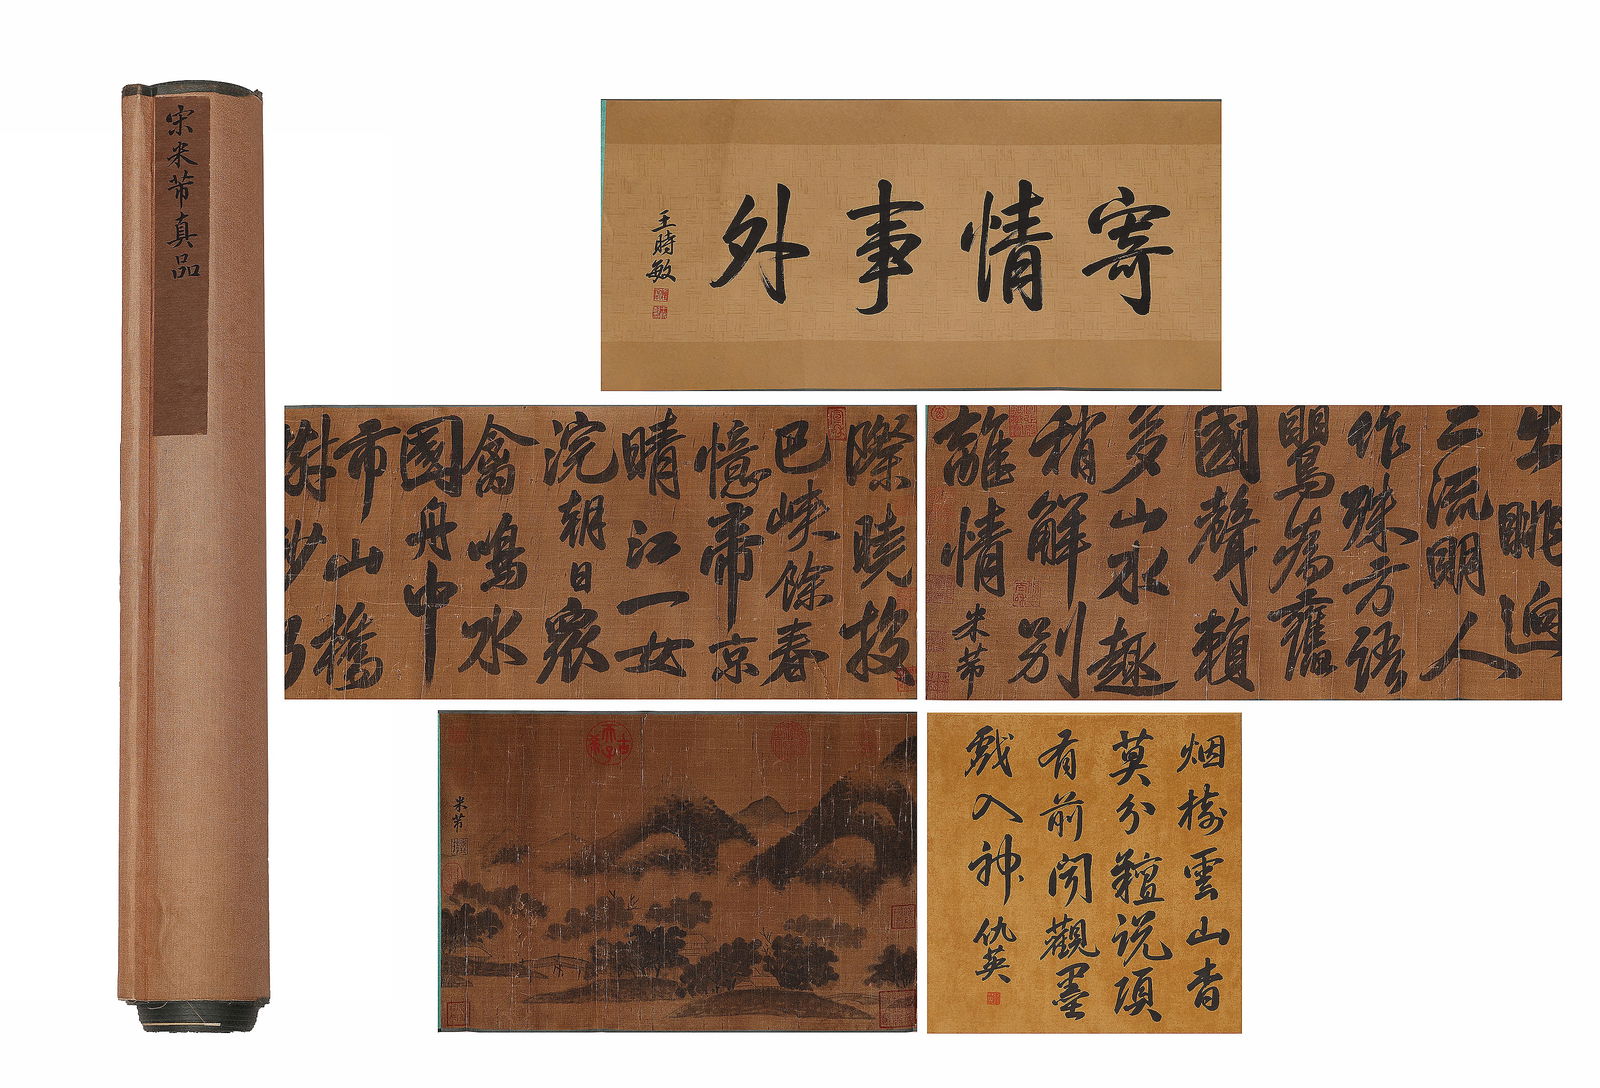 宋米芾真品
寄情事外
王時敏
際曉投
巴峽餘春
憶帝京
晴江一女
浣朝日衆
禽鳴水
國舟中
市山橋
出眺迥
三流明人
作殊方語
鶯為舊
國聲賴
多山水趣
稍解別
離情
米芾
米芾
烟樹雲山杳
莫分糧說項
有前聞觀墨
戲入神
仇英